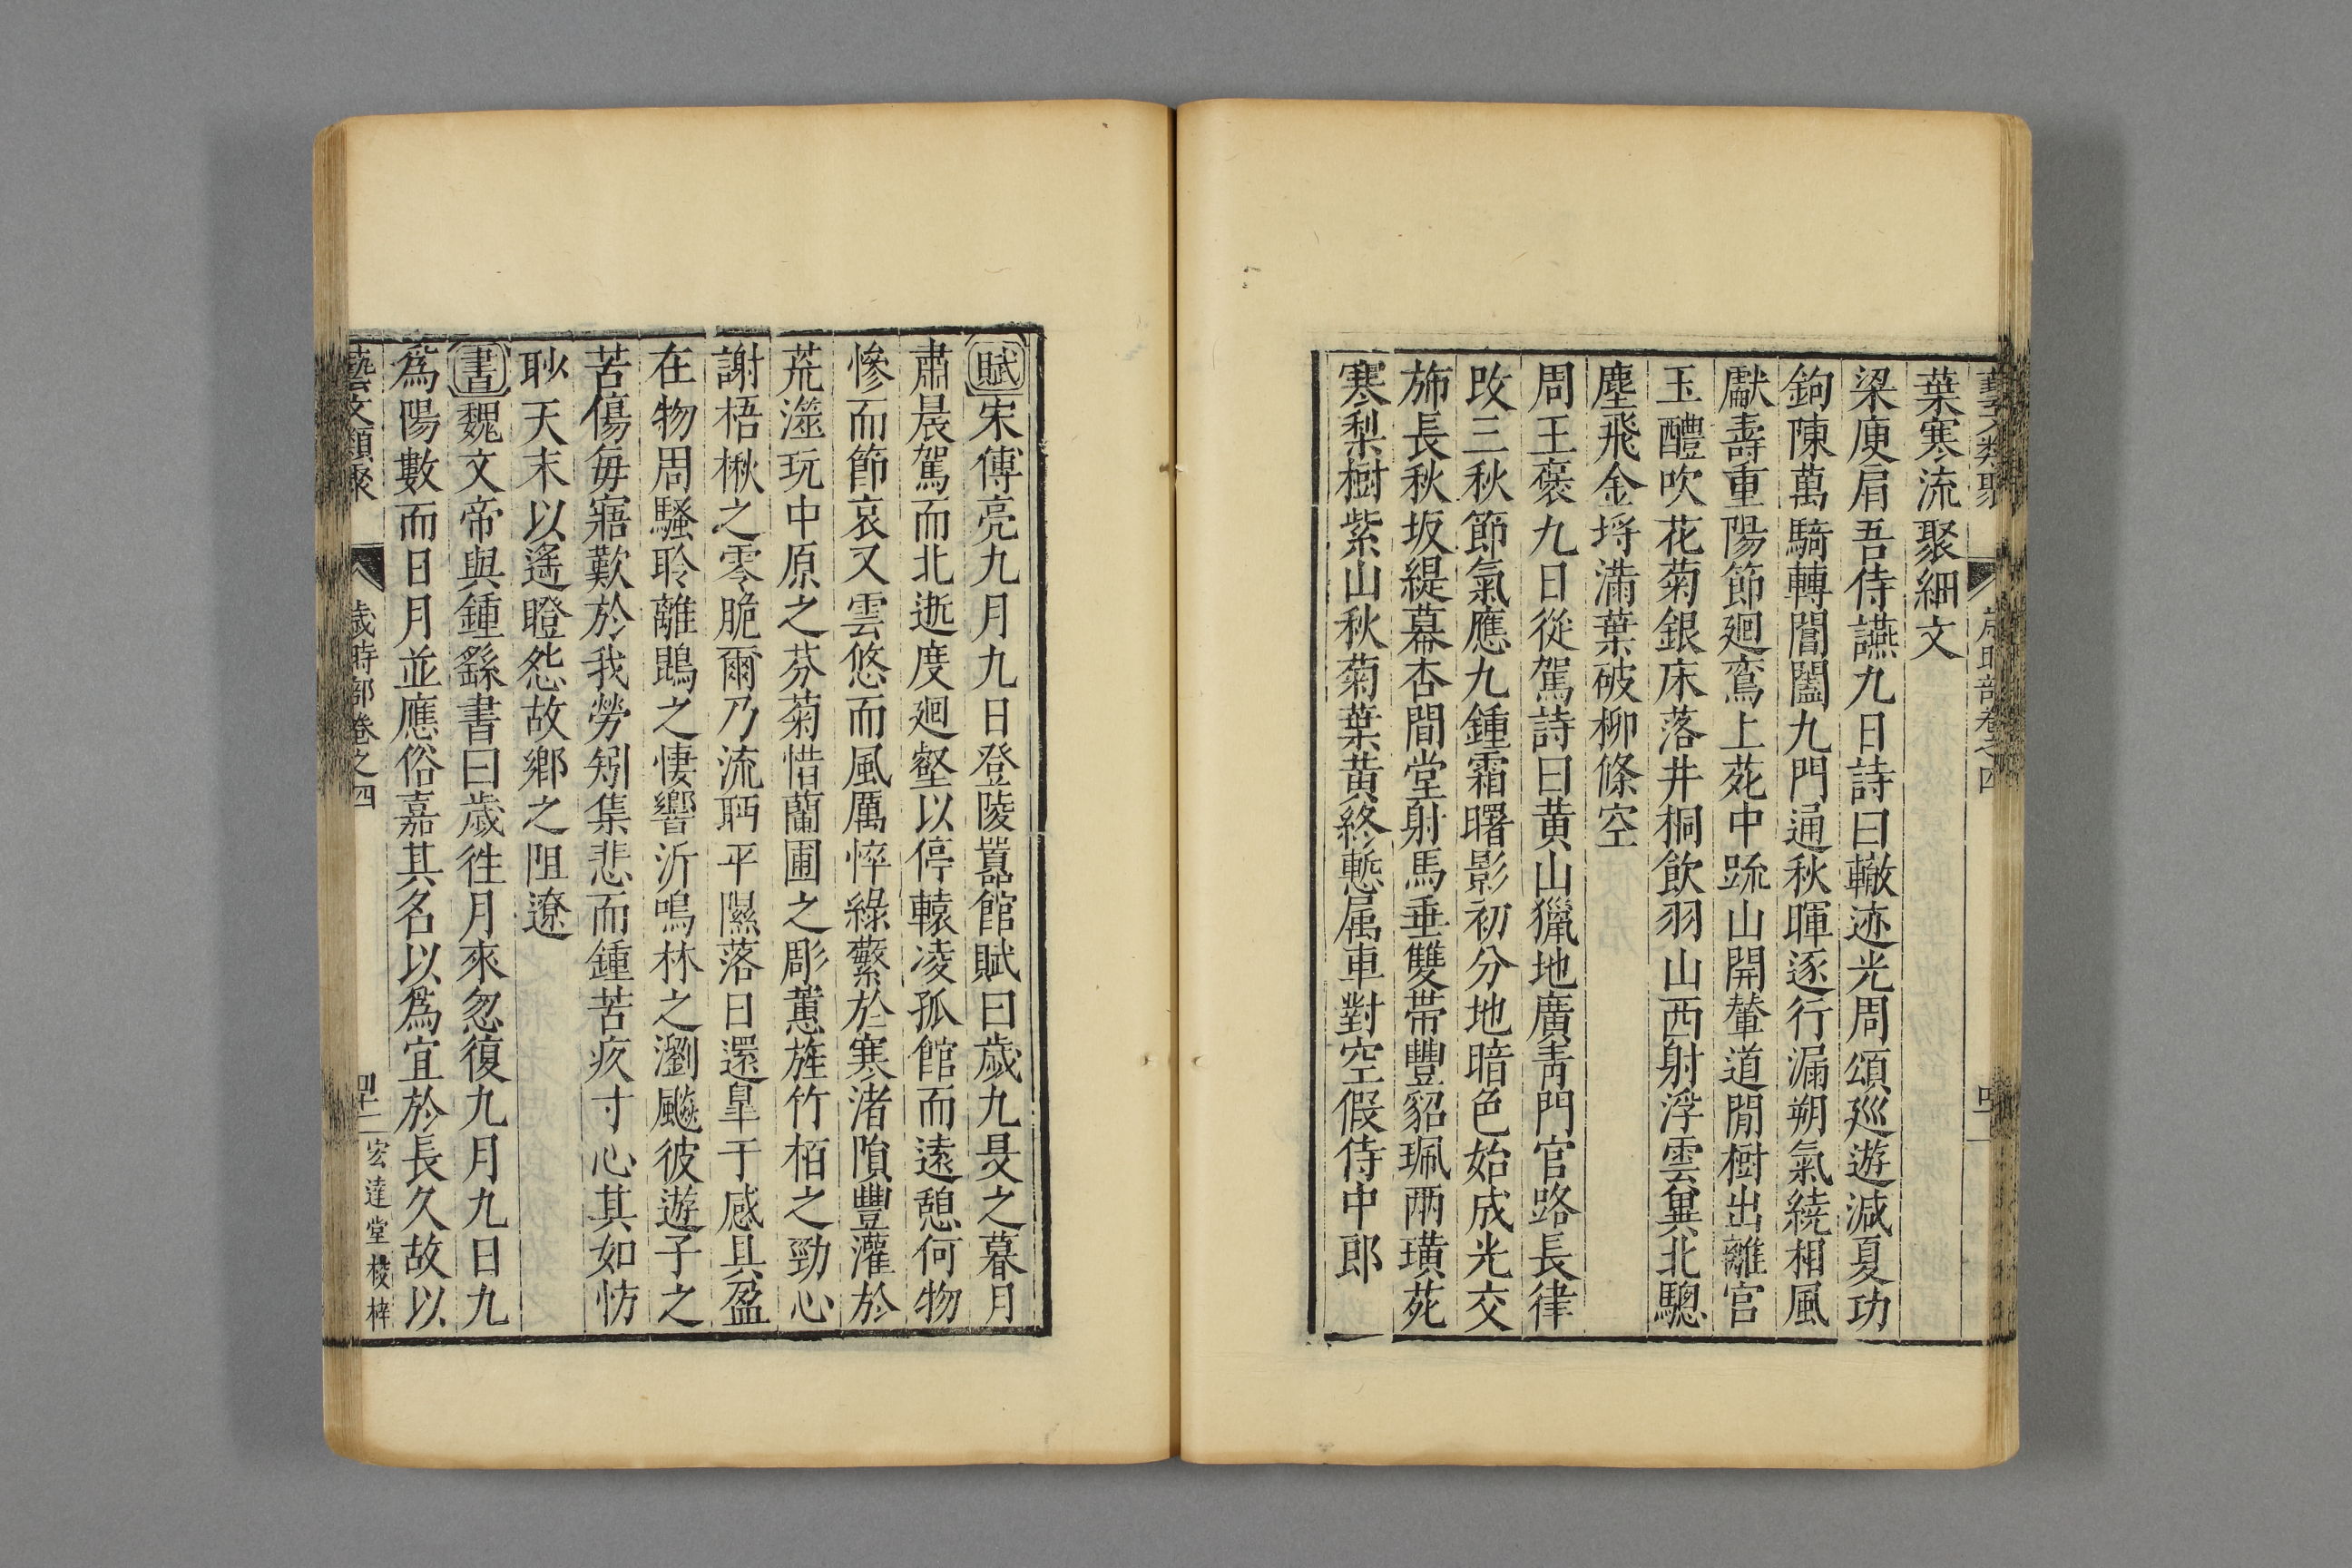 葉寒流聚細文
梁庾肩吾侍讌九日詩曰轍迹光周頌廵遊減夏功
鉤陳萬騎轉閶闔九門通秋暉逐行漏朔氣繞相風
獻壽重陽節廻鸞上苑中疏山開輦道閒樹出離宮
玉醴吹花菊銀床落井桐飲羽山西射浮雲冀北驄
塵飛金埒滿葉破柳條空
周王褒九日從駕詩曰黃山獵地廣青門官路長律
改三秋節氣應九鍾霜曙影初分地暗色始成光交
旆長秋坂緹幕杏間堂射馬垂雙帶豐貂珮兩璜苑
寒梨樹紫山秋菊葉黃終慙属車對空假侍中郎
賦宋傅亮九月九日登陵囂館賦曰歲九旻之暮月
肅晨駕而北逝度廻壑以停轅凌孤館而遠憩何物
慘而節哀又雲悠而風厲悴綠蘩於寒渚隕豐灌於
荒澨玩中原之芬菊惜蘭圃之彫蕙旌竹栢之勁心
謝梧楸之零脆爾乃流眄平隰落日還臯于感具盈
在物周騷聆離鵾之悽響沂鳴林之瀏飈彼遊子之
苦傷每寤歎於我勞矧集悲而鍾苦疚寸心其如忉
眇天末以遙瞪怨故鄉之阻遼
書魏文帝與鍾繇書曰歲徃月來忽復九月九日九
爲陽數而日月並應俗嘉其名以爲宜於長久故以
藝文類聚 歲時部卷之四 四十一 宏達堂校梓